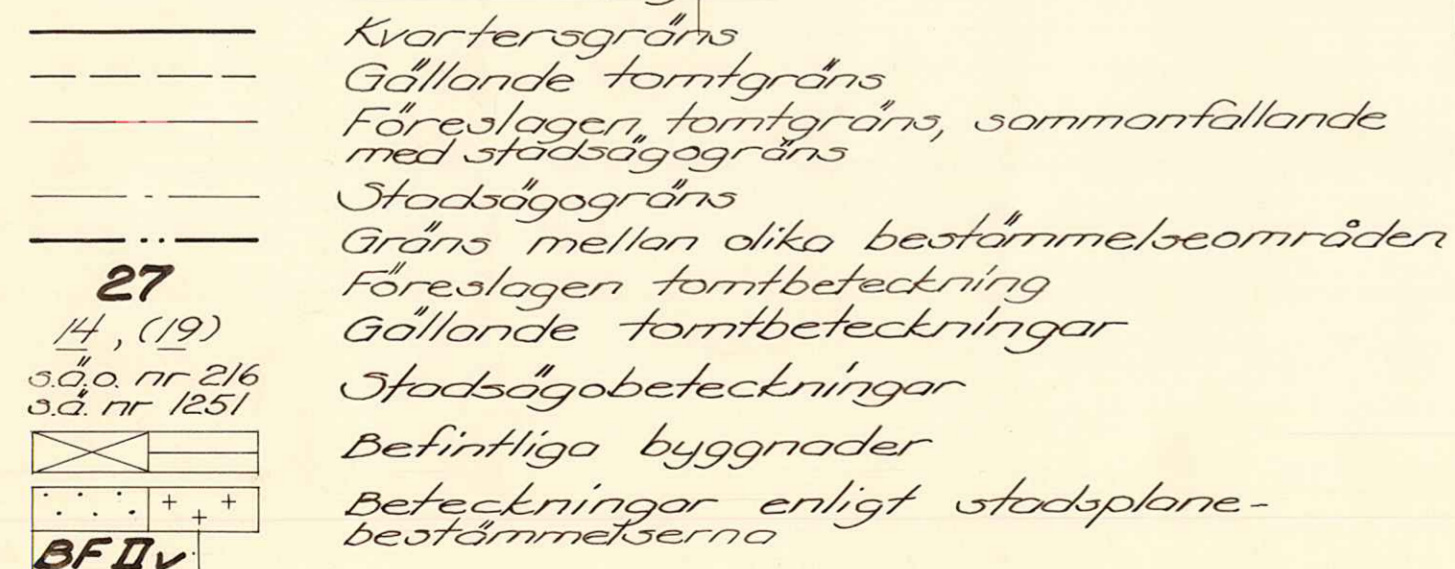 Kvartersgräns
Gällande tomtgräns
Föreslagen tomtgräns, sammanfallande
med stadsägogräns
Stadsägogräns
Gräns mellan olika bestämmelseområden
27 Föreslagen tomtbeteckning
14, (19) Gällande tomtbeteckningar
s.ä.o. nr 216
s.ä. nr 1251
Stadsägobeteckningar
Befintliga byggnader
Beteckningar enligt stadsplane-
bestämmelserna
BF II v